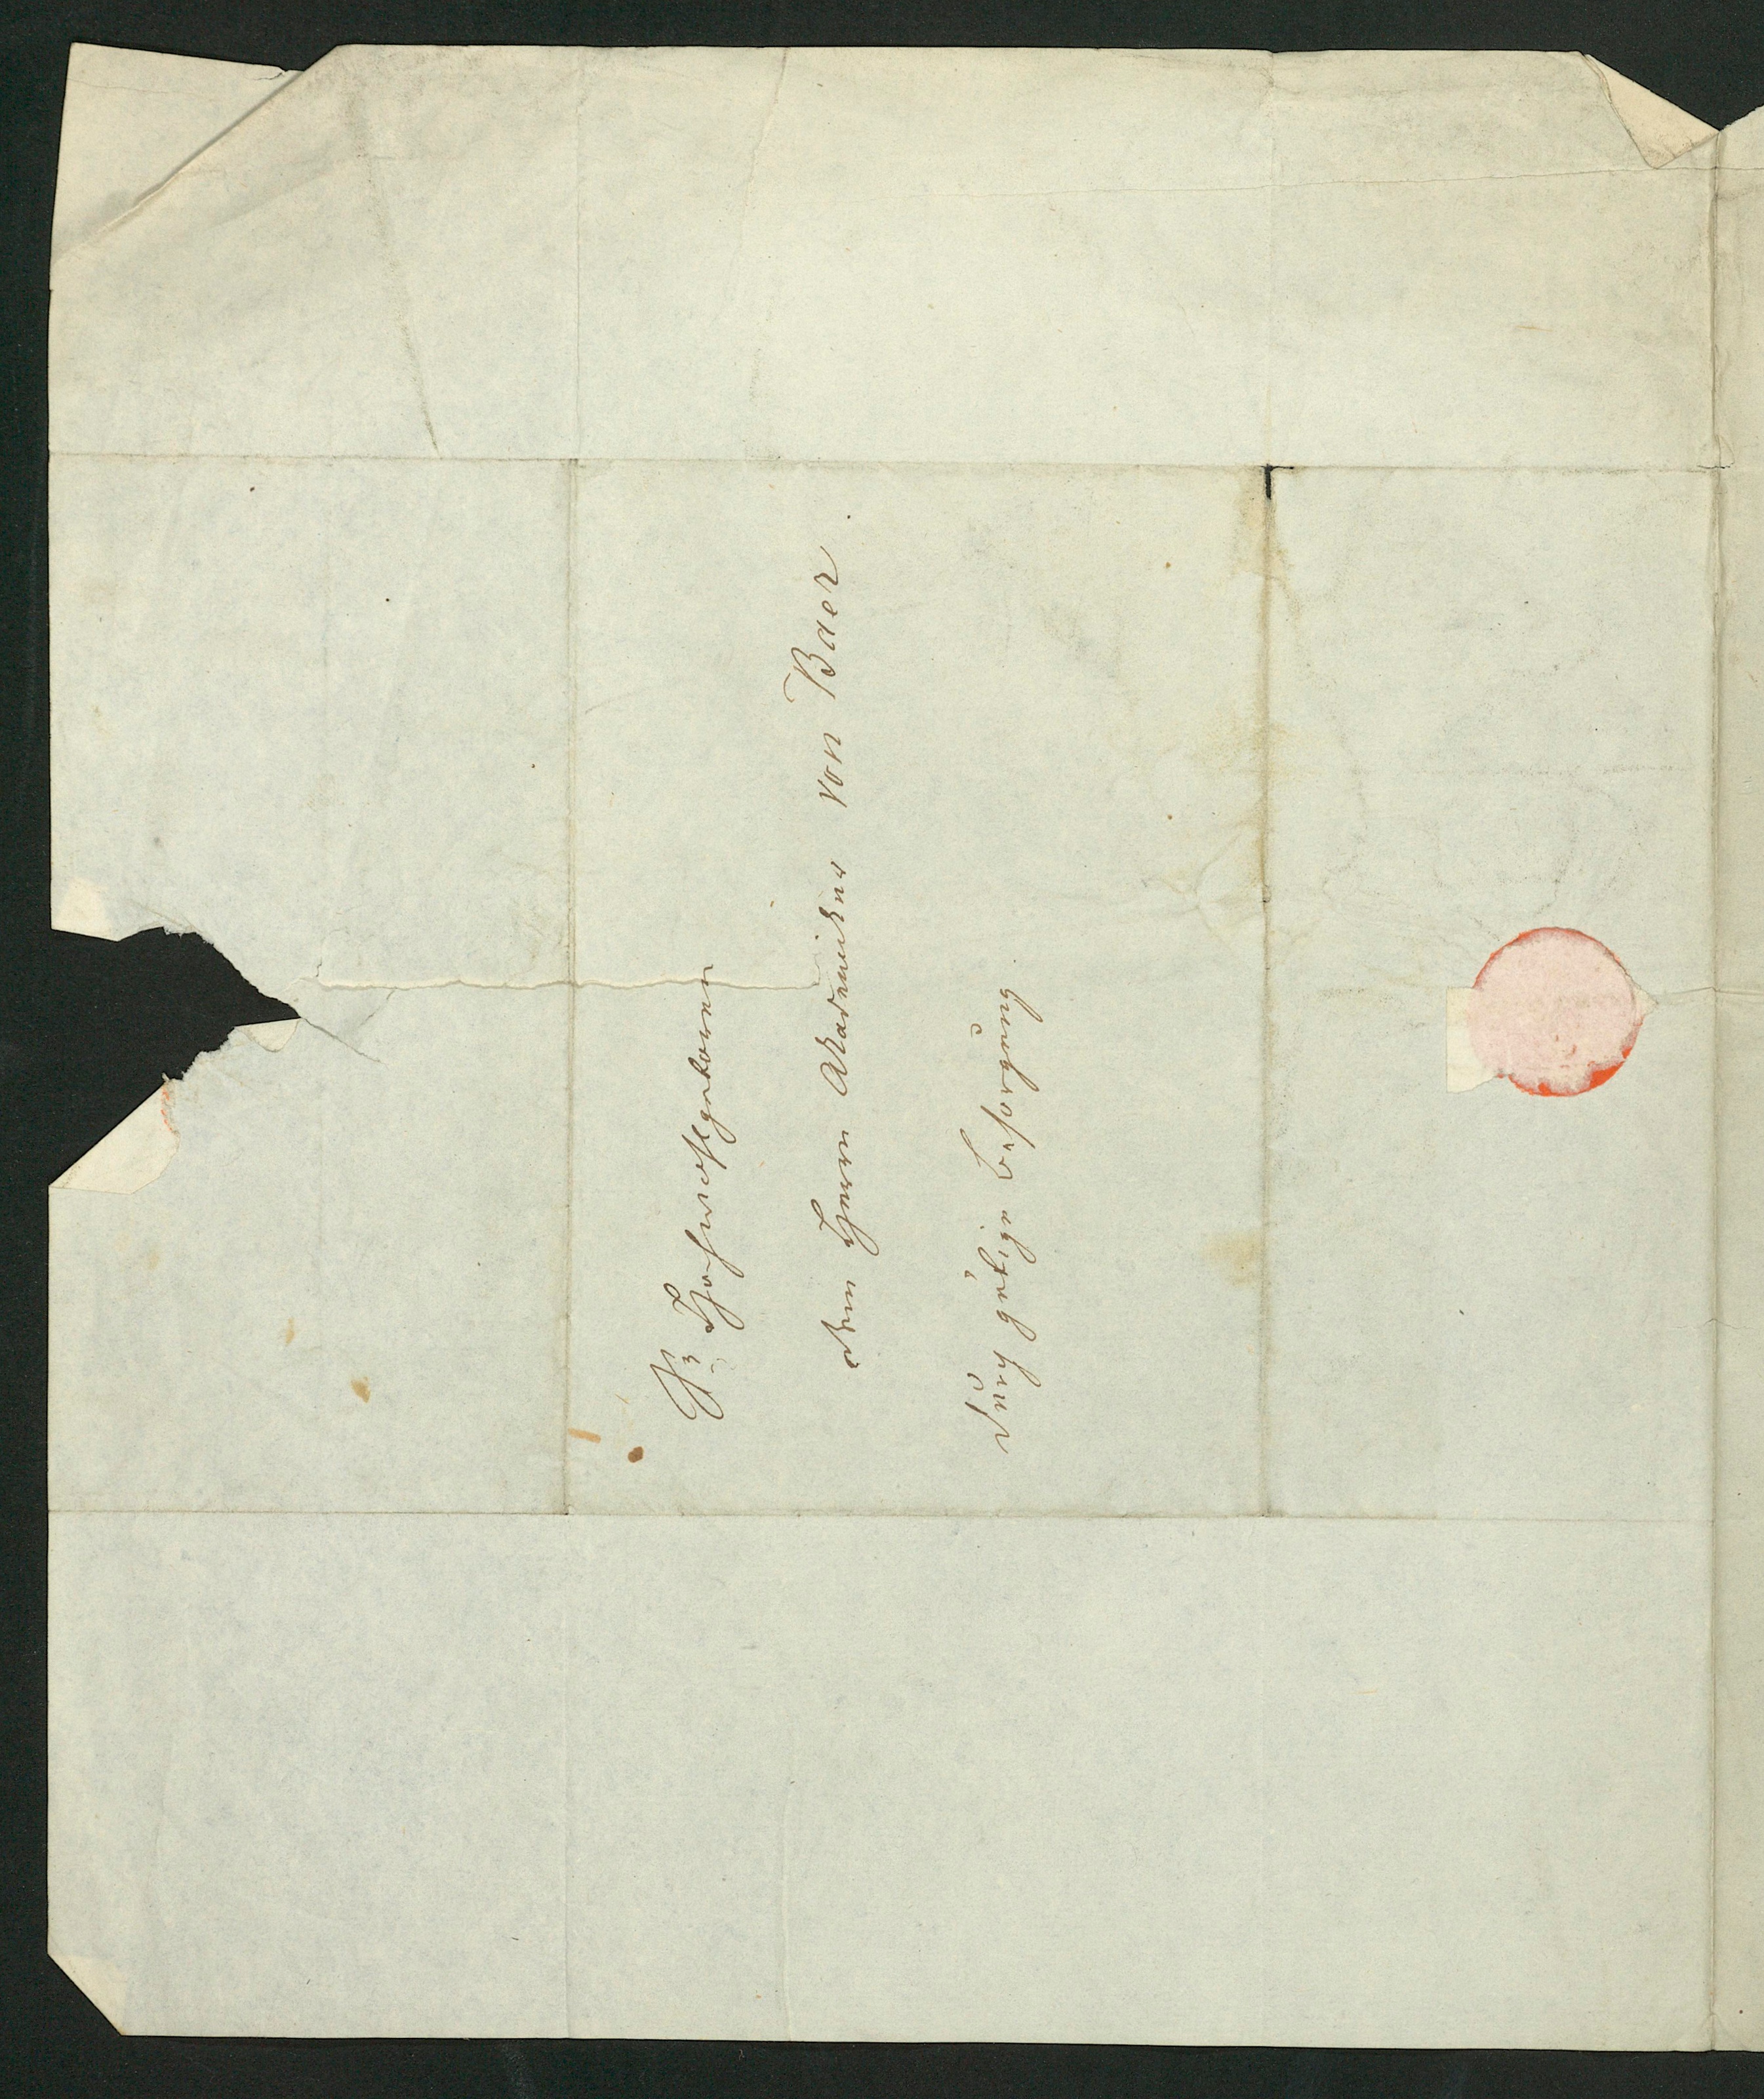 Sr Hochwohlgeboren
dem Herrn Akademiker von Baer
durch gütige Besorgung